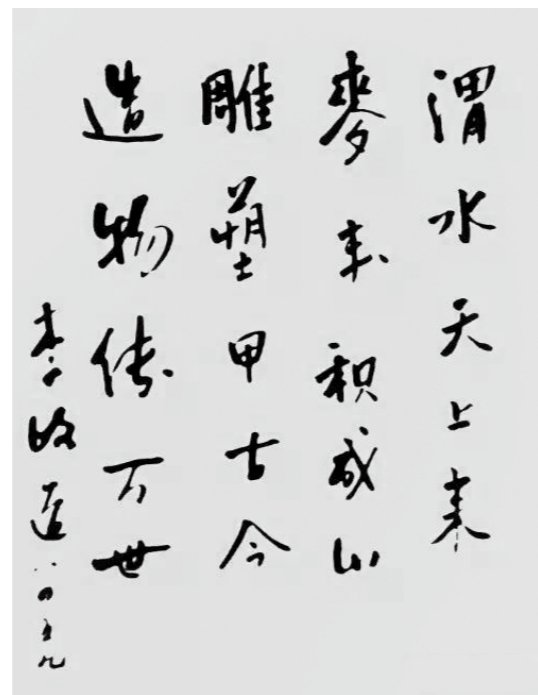 渭水天上来
麥束积成山
雕塑甲古今
造物传万世
李政道 八四五九